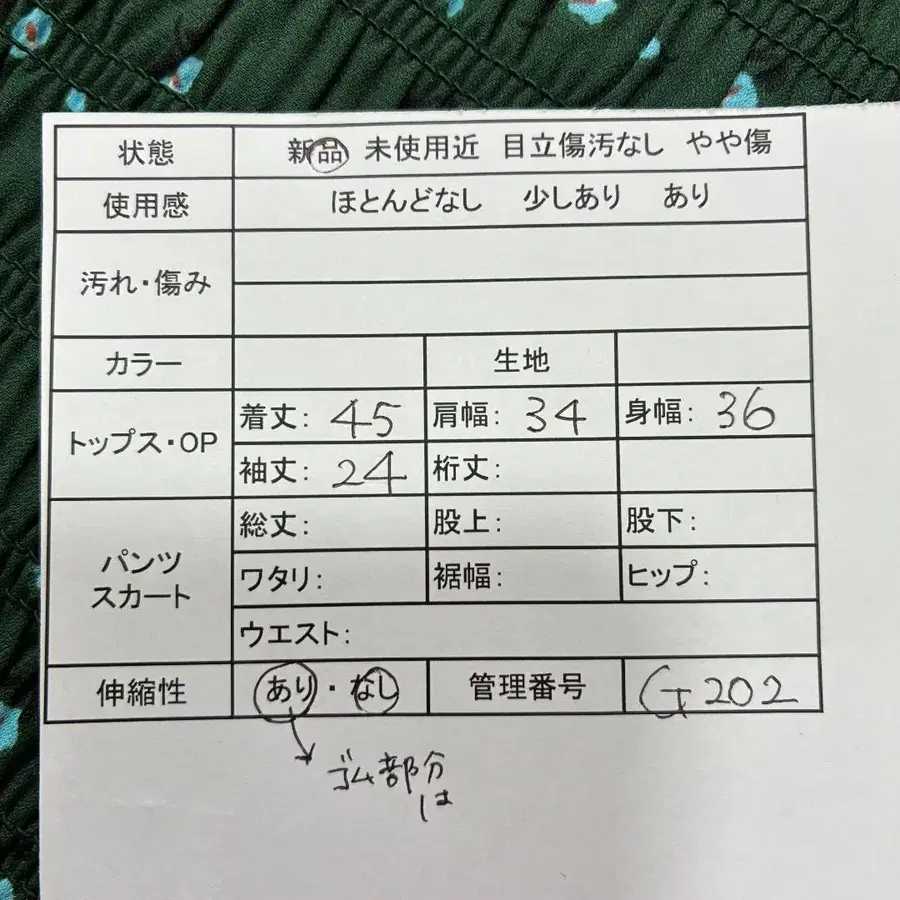 状態 新品 未使用近 目立傷汚なし やや傷
使用感 ほとんどなし 少しあり あり
汚れ・傷み
カラー 生地
トップス・OP
着丈: 45 肩幅: 34 身幅: 36
袖丈: 24 裄丈:
パンツ
スカート
総丈: 股上: 股下:
ワタリ: 裾幅: ヒップ:
ウエスト:
伸縮性 あり・なし 管理番号 G202
ゴム部分
は